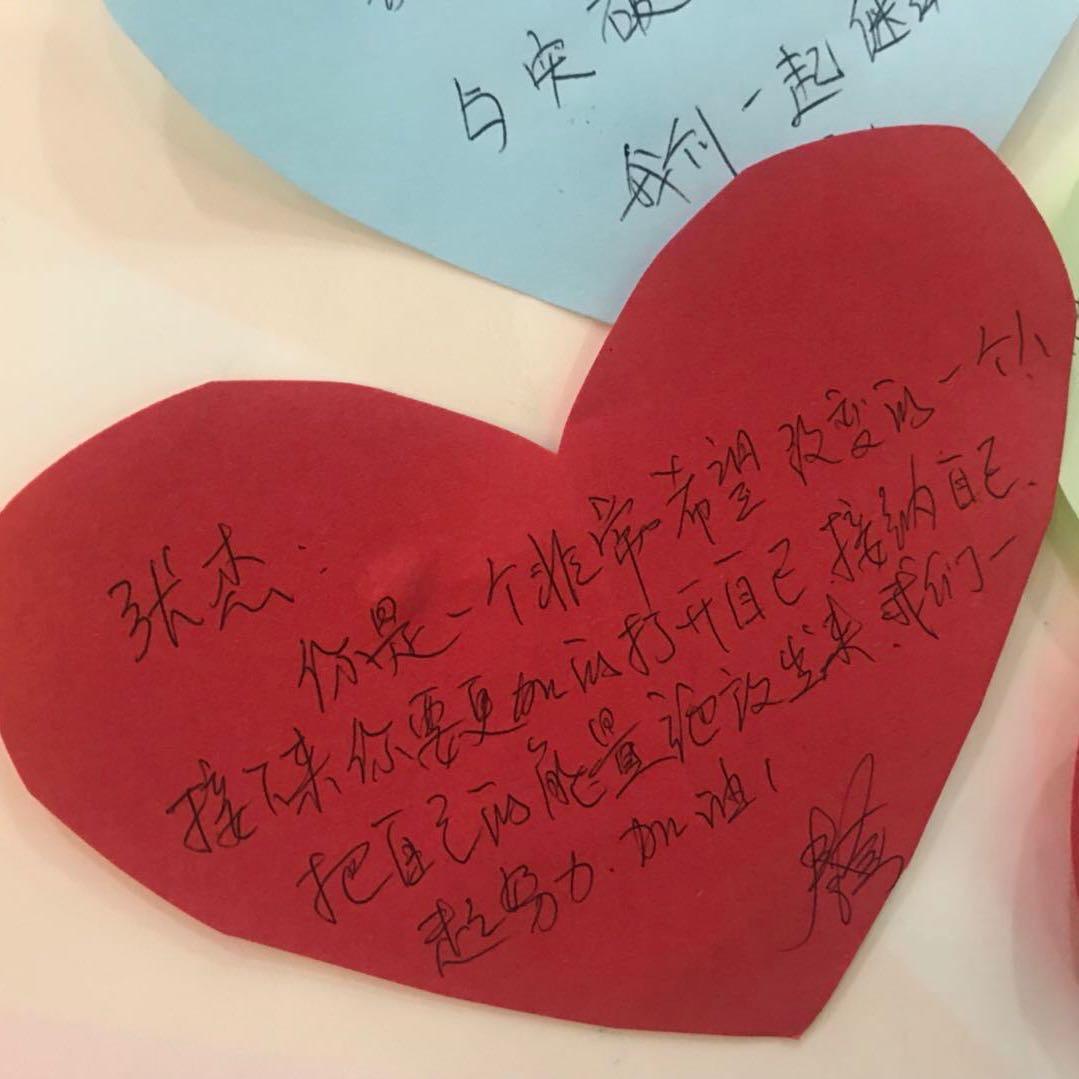 与突破
我们一起继续
张杰:
你是一个非常希望改变的一个人
接下来你要更加的打开自己.接纳自己.
把自己的能量绽放出来.我们一
起努力.加油!